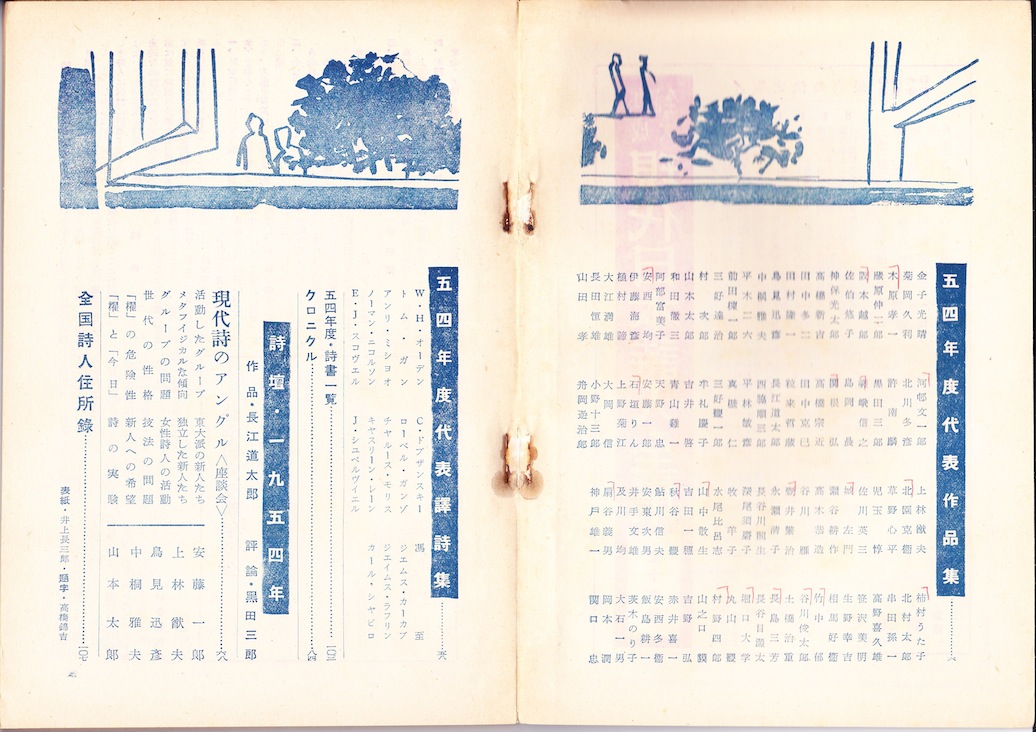 五四年度代表作品集
金子光晴
河邨文一郎
上林猷夫
植村うた子
菊岡久利
北川多彦
北園克衞
北村太郎
木原孝一
許南麟
草野心平
串田孫一
藏原伸二郎
黒田三郎
児玉惇
高野喜久雄
阪本越郎
嵯峨信之
佐川英三
笹沢美明
佐伯悠子
島岡晨
城左門
生野幸吉
神保光太郎
関根弘
瀬谷耕作
相馬好衞
高橋新吉
高橋宗近
高木恭造
竹中郁
田中冬二
田中克巳
谷川雁
谷川俊太郎
田村隆一
粒来哲蔵
壺井繁治
土橋治重
鳥見迅彦
長江道太郎
永瀬清子
長島三芳
中桐雅夫
西脇順三郎
長谷川龍生
長谷目源太
平木二六
平林敏彦
深尾須磨子
堀口大学
前田棟一郎
真壁仁
牧羊子
丸山薫
三好達治
三好豊一郎
水尾比呂志
村野四郎
村次郎
牟礼慶子
山中散生
山之口貘
山本太郎
吉井啓一
吉田一穂
吉野弘
和田徹三
青山雞一
秋谷豊
赤井喜一
阿部富美子
天野忠
鮎川信夫
安西冬衞
安西均
安藤一郎
安東次男
飯島耕一
伊藤海彦
石垣りん
井手文雄
茨木のり子
植村諦
上野菊江
及川均
大石一男
大江満雄
大岡信
扇谷義男
岡本潤
長田恒雄
小野十三郎
神戸雄一
関口忠
山田孝
舟岡遊治郎
五四年度代表譯詩集
W・H・オーデン
C・ドブザンスキー
馮至
トム・ガン
ローベル・ガンゾ
ジエムス・カーカブ
アンリ・ミショオ
チャルース・モリス
ジェイムス・ラフリン
ノーマン・ニコルソン
キヤスリーン・レーン
カール・シヤピロ
E・J・スコヴエル
J・シユペルヴイエル
五四年度・詩書一覧
クロニクル
詩壇・一九五四年
作品・長江道太郎
評論・黒田三郎
現代詩のアングル〈座談会〉
活動したグループ
東大派の新人たち
メタフイジカルな傾向
独立した新人たち
グループの問題
女性詩人の活動
世代の性格
技法の問題
「櫂」の危険性
新人への希望
「櫂」と「今日」
詩の実験
安藤一郎
上林猷夫
鳥見迅彦
中桐雅夫
山本太郎
全国詩人住所錄
表紙・井上長三郎・題字・高橋錦吉